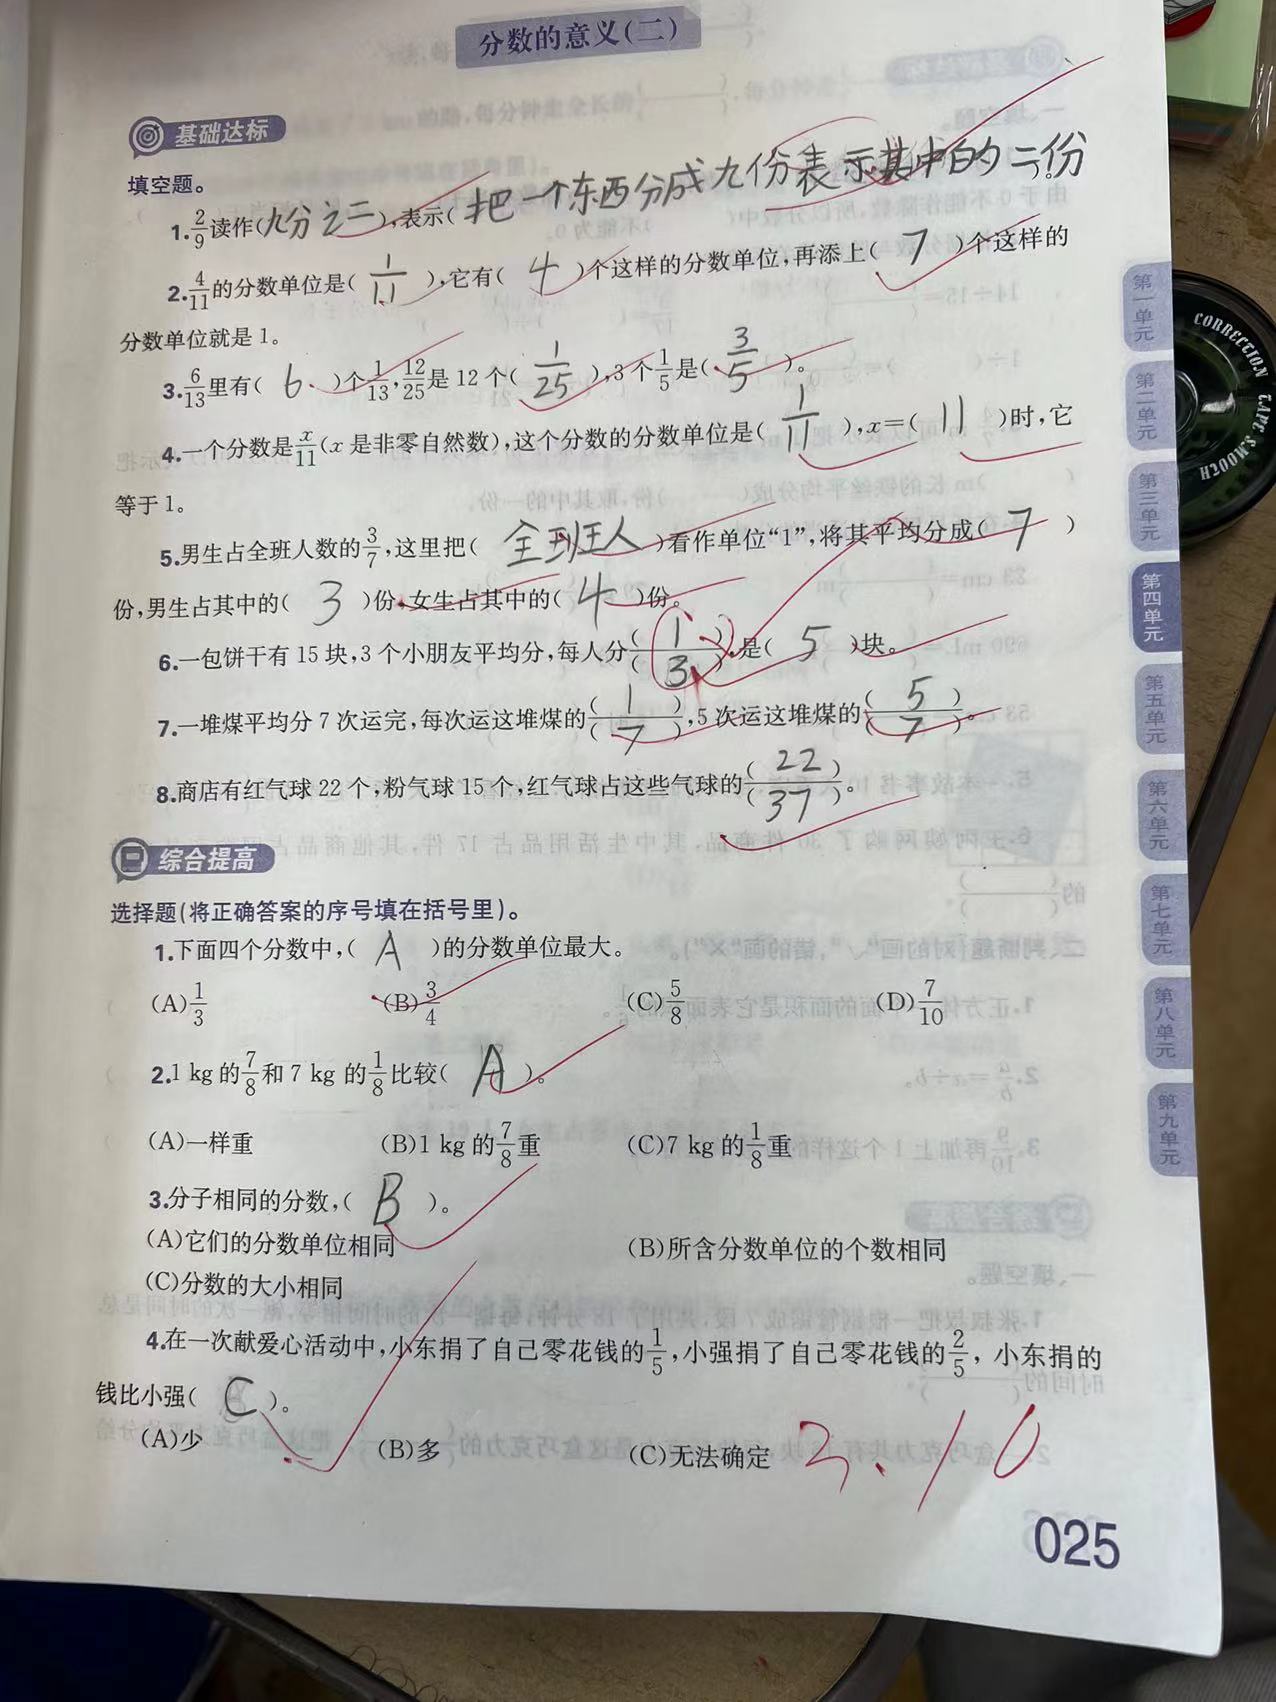 分数的意义(二)
基础达标
填空题。
1.2/9读作(九分之二),表示(把一个东西分成九份表示其中的二份
2.4/11的分数单位是( 1/11 ),它有( 4 )个这样的分数单位,再添上( 7 )个这样的
分数单位就是1。
3.6/13里有( 6 )个1/13,12/25是12个( 1/25 ),3个1/5是( 3/5 )。
4.一个分数是x/11(x是非零自然数),这个分数的分数单位是( 1/11 ),x=( 11 )时,它
等于1。
5.男生占全班人数的3/7,这里把( 全班人 )看作单位“1”,将其平均分成( 7 )
份,男生占其中的( 3 )份,女生占其中的( 4 )份。
6.一包饼干有15块,3个小朋友平均分,每人分( 1 )/( 3 ),是( 5 )块。
7.一堆煤平均分7次运完,每次运这堆煤的( 1 )/( 7 ),5次运这堆煤的( 5 )/( 7 )。
8.商店有红气球22个,粉气球15个,红气球占这些气球的( 22 )/( 37 )。
综合提高
选择题(将正确答案的序号填在括号里)。
1.下面四个分数中,( A )的分数单位最大。
(A)1/3 (B)3/4 (C)5/8 (D)7/10
2.1 kg的7/8和7 kg的1/8比较( A )。
(A)一样重 (B)1 kg的7/8重 (C)7 kg的1/8重
3.分子相同的分数,( B )。
(A)它们的分数单位相同 (B)所含分数单位的个数相同
(C)分数的大小相同
4.在一次献爱心活动中,小东捐了自己零花钱的1/5,小强捐了自己零花钱的2/5,小东捐的
钱比小强( C )。
(A)少 (B)多 (C)无法确定
3.10
025
第一单元
第二单元
第三单元
第四单元
第五单元
第六单元
第七单元
第八单元
第九单元
CORRECTION TAPE SMOOTH